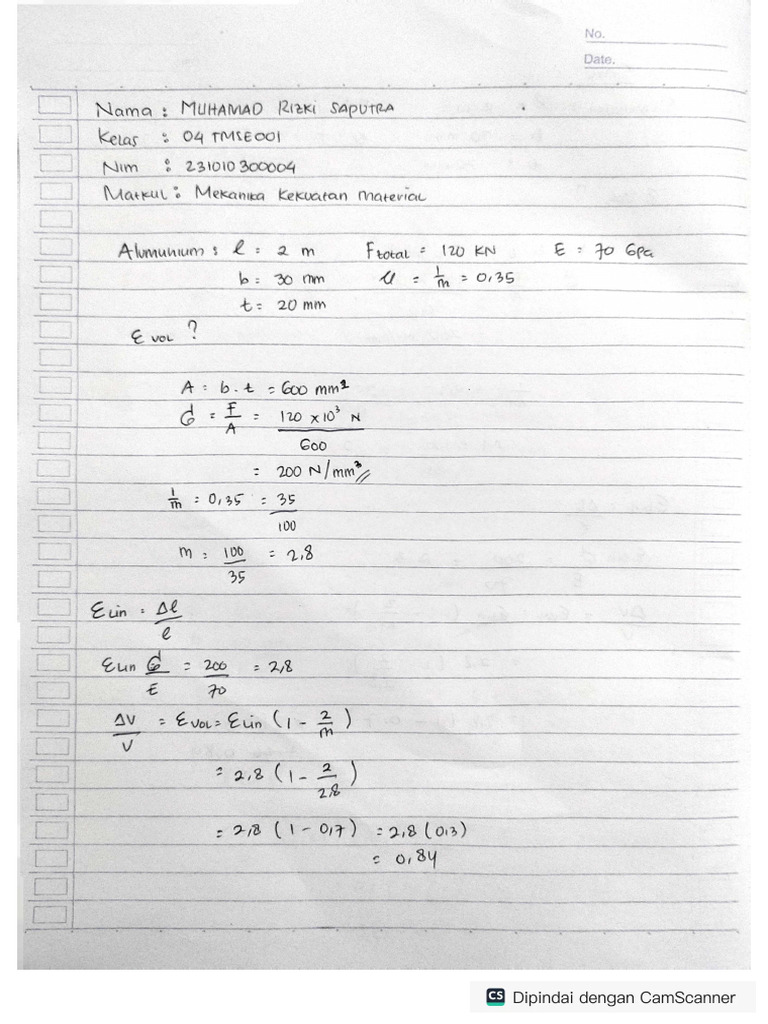 No.
Date.
Nama : MUHAMAD RIZKI SAPUTRA
Kelas : 04 TMSE001
Nim : 231010300004
Matkul : Mekanika Kekuatan Material
Alumunium : l = 2 m F total = 120 KN E = 70 Gpa
b = 30 mm μ = 1/m = 0,35
t = 20 mm
ε vol ?
A = b . t = 600 mm²
σ = F/A = 120 x 10³ N / 600
= 200 N/mm³
1/m = 0,35 = 35/100
m = 100/35 = 2,8
ε Lin = Δl/l
ε Lin σ/E = 200/70 = 2,8
ΔV/V = ε VOL = ε Lin (1 - 2/m)
= 2,8 (1 - 2/2,8)
= 2,8 (1 - 0,7) = 2,8 (0,3)
= 0,84
CS Dipindai dengan CamScanner